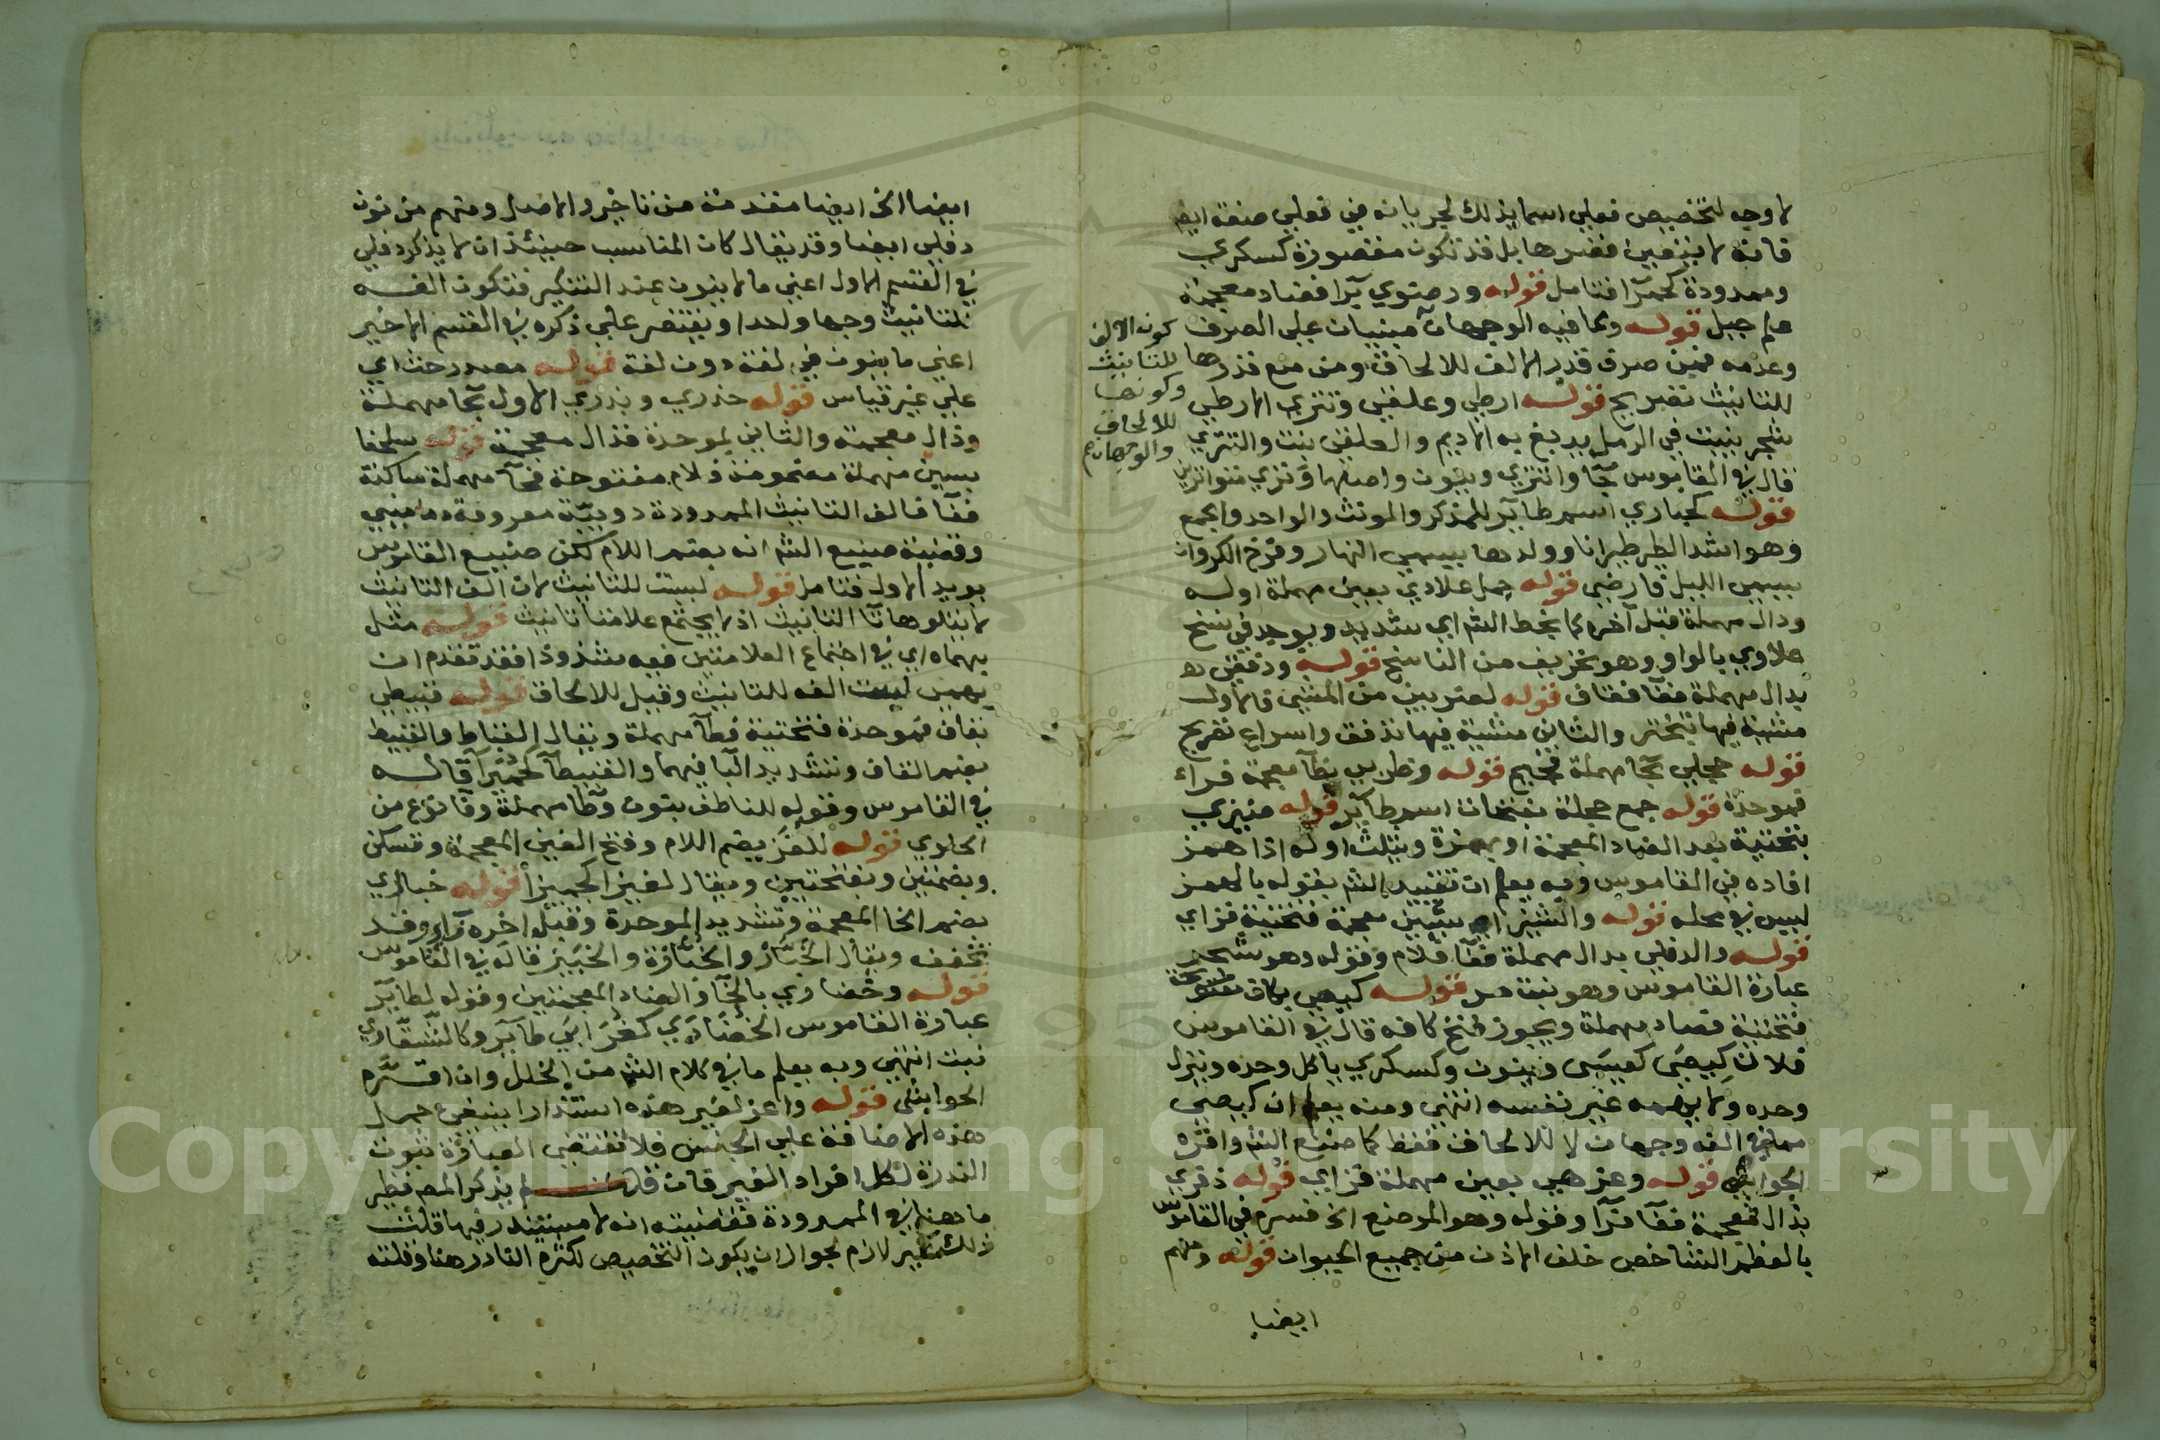 لا وجه لتخصيص فعلى اسما بذلك لجريانه في فعلى صفة ايضا
فانه لا يتعين قصرها بل قد تكون مقصورة كسكرى
وممدودة كحمرآ فتامل قوله ورضوى برآ فضاد معجمة
علم جبل قوله ومما فيه الوجهان مبنيان على الصرف
وعدمه فمن صرف قدر الالف للالحاق ومن منع قدرها
للتانيث تصريح قوله ارطى وعلقى وتترى الارطى
شجر ينبت في الرمل يدبغ به الاديم والعلقى نبت والتترى
قال في القاموس جآوا تترى وينون واصلها وترى متواترين
قوله كحبارى اسم طآئر للمذكر والمونث والواحد والجمع
وهو اشد الطير طيرانا وولدها يسمى النهار وفرخ الكروان
يسمى الليل فارضى قوله جمل علادى بعين مهملة اوله
ودال مهملة قبل آخره كما بخط الشم اي شديد ويوجد في نسخ
علاوى بالواو وهو تحريف من الناسخ قوله ودفقى
بدال مهملة ففآ فقاف قوله لضربين من المشى فالاول
مشية فيها تبختر والثاني مشية فيها تدفق واسراع تصريح
قوله حجلى بحا مهملة فجيم قوله وظربى بظآ معجمة فراء
فموحدة قوله جمع حجلة بفتحات اسم طآئر قوله ضيزى
بتحتية بعد الضاد المعجمة او بهمزة ويثلث اوله اذا همز
افاده في القاموس وبه يعلم ان تقييد الشم بقوله بالهمز
ليس في محله قوله والشيزى بشين معجمة فتحتية فزاي
قوله والدفلى بدال مهملة ففآ فلام وقوله وهو شجر
عبارة القاموس وهو نبت مر قوله كيصى بكاف مفتوحة
فتحتية فصاد مهملة ويجوز فتح كافه قال في القاموس
فلان كيصى كعيسى وينون وكسكرى ياكل وحده وينزل
وحده ولا يهمه غير نفسه انتهى ومنه يعلم ان كيصى
مما في الفه وجهان لا للالحاق فقط كما صنع الشم واقره
الحواشي قوله وعزهى بعين مهملة فزاي قوله ذفرى
بذال معجمة ففآ فرآ وقوله وهو الموضع الخ فسره في القاموس
بالعظم الشاخص خلف الاذن من جميع الحيوان قوله ومنهم
ايضا
كون الالف
للتانيث
وكونها
للالحاق
والوجهان
ايضا الخ ايضا مقدمة من تاخير والاصل ومنهم من نون
دفلى ايضا وقد يقال كان المناسب حينئذ ان لا يذكر دفلى
في القسم الاول اعني ما لا ينون عند التنكير فتكون الفه
للتانيث وجها واحدا ويقتصر على ذكره في القسم الاخير
اعني ما ينون في لغة دون لغة قوله مصدر حث اي
على غير قياس قوله حذرى وبذرى الاول بحآ مهملة
وذال معجمة والثاني بموحدة فذال معجمة قوله سلحفا
بسين مهملة مضمومة فلام مفتوحة فحآ مهملة ساكنة
ففآ فالف التانيث الممدودة دويبة معروفة دماميني
وقضية صنيع الشم انه بضم اللام لكن صنيع القاموس
يويد الاول فتامل قوله ليست للتانيث لان الف التانيث
لا يتلوها تآ التانيث اذ لا يجتمع علامتا تانيث قوله مثل
بهماه اي في اجتماع العلامتين فيه شذوذا فقد تقدم ان
بهمى ليست الفه للتانيث وقيل للالحاق قوله قبيطى
بقاف فموحدة فتحتية فطآ مهملة ويقال القباط والقبيط
بضم القاف وتشديد البآ فيهما والقبيطآ كحميرآ قاله
في القاموس وقوله للناطف بنون وطا مهملة وفآ نوع من
الحلوى قوله للغز بضم اللام وفتح الغين المعجمة وتسكن
وبضمتين وبفتحتين ويقال لغيزا كحميرا قوله خبازى
بضم الخا المعجمة وتشديد الموحدة وقبل اخره زاي وقد
تخفف ويقال الخباز والخبازة والخبيز قاله في القاموس
قوله وخضارى بالخآ والضاد المعجمتين وقوله لطائر
عبارة القاموس الخضارى كغرابى طآئر وكالشقارى
نبت انتهى وبه يعلم ما في كلام الشم من الخلل وان اقره
الحواشي قوله واعز لغير هذه استندارا ينبغي حمل
هذه الاضافة على الجنس فلا تقتضى العبارة ثبوت
الندرة لكل افراد الغير فان قلت لم يذكر المصنف نظير
ما هنا في الممدودة فقضيته انه لا مستندر فيها قلت
ذلك غير لازم لجواز ان يكون التخصيص لكثرة النادر هنا وقلته